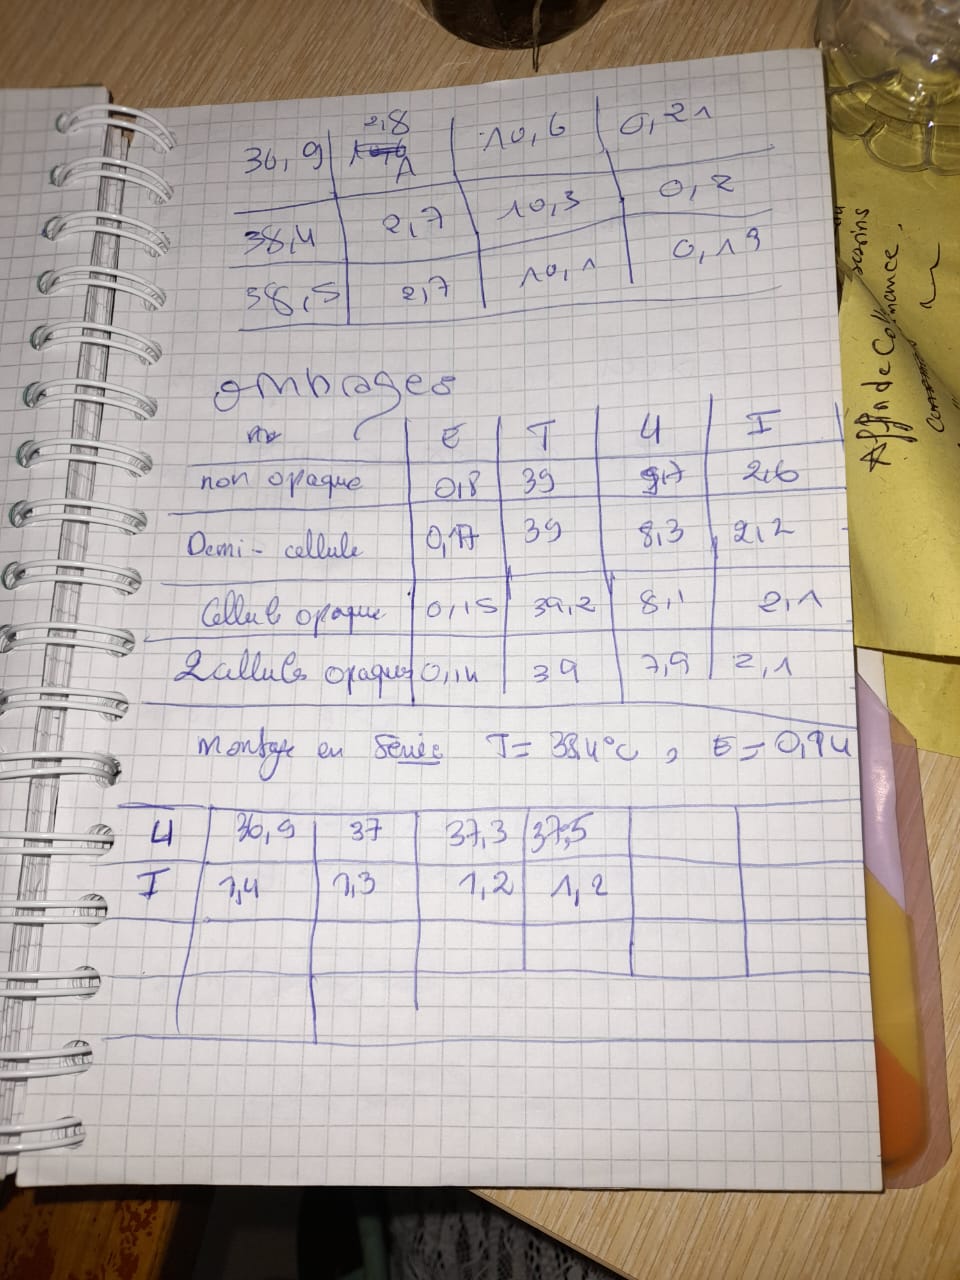 36,9 2,8 A 10,6 0,21
38,4 2,7 10,3 0,2
38,5 2,7 10,1 0,19
ombrages
E T U I
non opaque 0,8 39 9,7 2,6
Demi-cellule 0,17 39 8,3 2,2
Cellule opaque 0,15 39,2 8,1 2,1
2 cellules opaques 0,14 39 7,9 2,1
Montage en Série T = 38,4°C , E = 0,94
U 36,9 37 37,3 37,5
I 1,4 1,3 1,2 1,2
Affin de Collmance